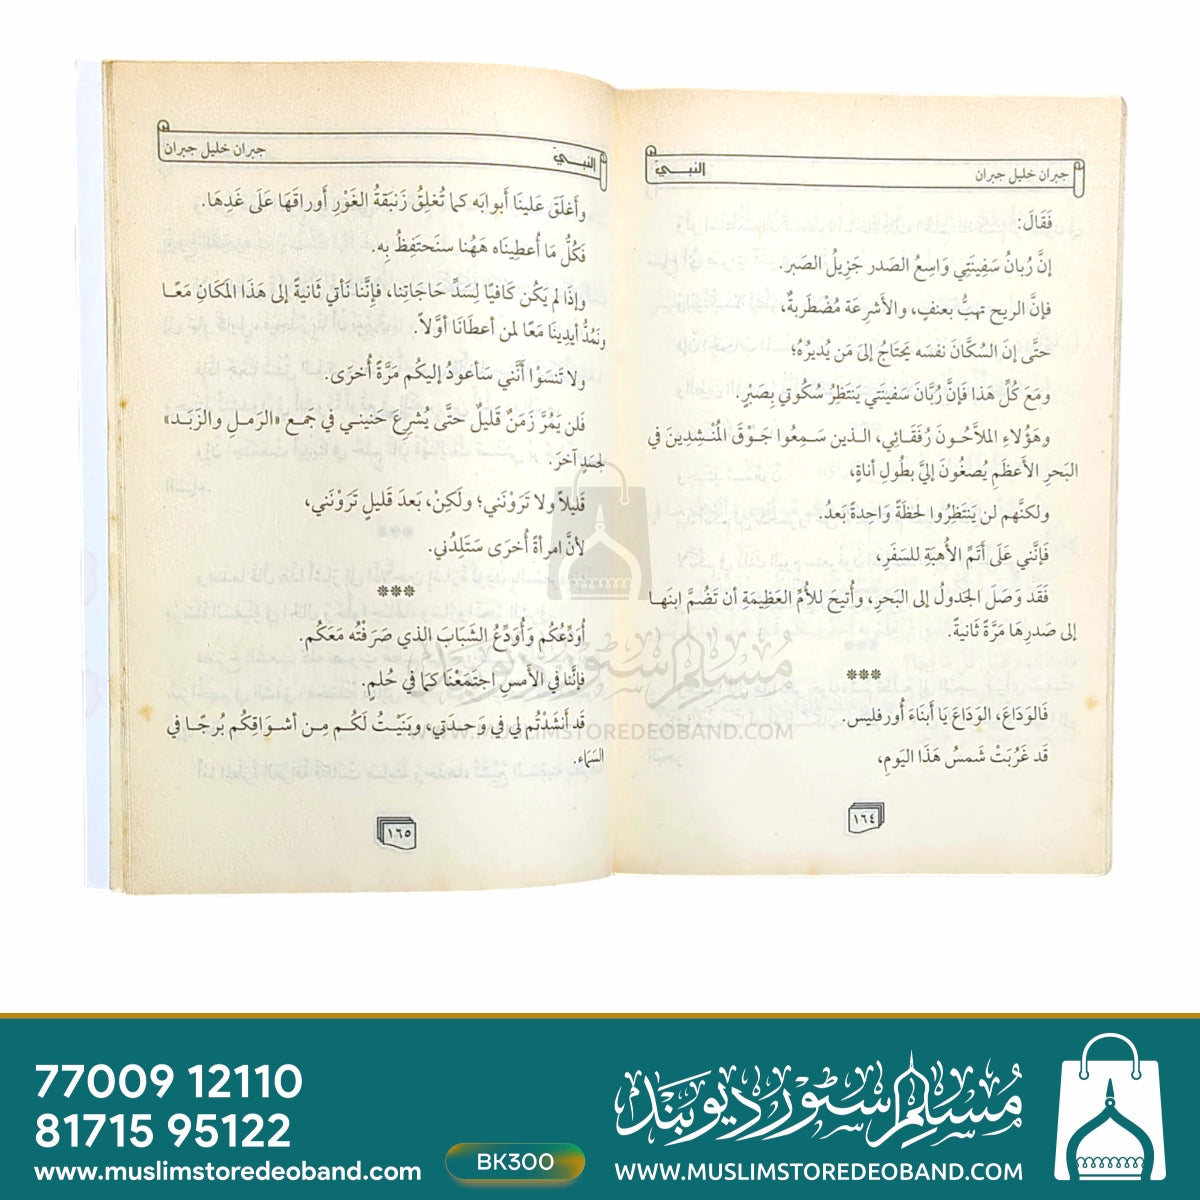 جبران خليل جبران
النبــي
فَقَالَ:
إنَّ رُبانُ سَفِينَتِي وَاسِعُ الصَدر جَزِيلُ الصَبر.
فإنَّ الريح تهبُّ بعنفٍ، والأَشرِعَة مُضْطَرِبةٌ،
حتَّى إنَ السُكَّانَ نفسَه يَحتَاجُ إلىَ مَن يُديرُهُ؛
ومَعَ كُلِّ هَذا فَإنَّ رُبَّانَ سَفينَتَي يَنتَظِرُ سُكُوتي بِصَبْرٍ.
وهَؤُلاءِ المَلاَّحُـونَ رُفَقَـائِي، الـذينَ سَمِعُوا جَـوْقَ المُنْـشِدِينَ في
البَحرِ الأَعظَم يُصغُونَ إليَّ بِطُولِ أناةٍ،
ولكنَّهم لن يَنتَظِرُوا لحَظَةً وَاحِدةً بَعدُ.
فَإنَّني عَلَى أَتَمِّ الأُهبَةِ للسَفَرِ،
فَقَد وَصَلَ الجَدولُ إلى البَحرِ، وأُتيحَ للأُمِّ العَظِيمَةِ أن تَضُمَّ ابنَهـا
إلى صَدرِهَا مَرَّةً ثَانيةً.
***
فَالوَدَاعَ، الوَدَاعَ يَا أَبنَاءَ أُورفليس.
قَد غَرُبَتْ شَمسُ هَذَا اليَومِ،
١٦٤
النبــي
جبران خليل جبران
وأَغلَقَ عَلَينَا أَبوابَه كما تُغلِقُ زَنبَقَةُ الغَوْرِ أَوراقَهَا عَلَى غَدِهَا.
فَكُلُّ مَا أُعطِينَاه هَهُنا سنَحتَفِظُ بِه.
وإذَا لم يَكُن كَافيًا لِسَدِّ حَاجَاتِنا، فإنَّنا نَأتي ثَانيةً إلى هَذَا المَكَانِ مَعًـا
ونَمُدُّ أيدِينَا مَعًا لمن أعطَانَا أوَّلاً.
ولا تَنسَوْا أَنَّني سَأعودُ إليكُم مَرَّةً أُخرَى.
فلَن يَمُرَّ زَمَنٌ قَليلٌ حتَّى يُشرِعَ حَنيني في جَمعِ «الرَمـلِ والزَبَـد»
لجَسَدٍ آخَرَ.
قَليلاً ولا تَرَوْنَني؛ ولَكِنْ، بَعدَ قَليلٍ تَرَوْنَني،
لأنَّ امرأةً أُخرَى سَتَلِدُني.
***
أُوَدِّعُكُم وَأُوَدِّعُ الشَبَابَ الذي صَرَفْتُه مَعَكُم.
فإنَّنا في الأَمسِ اجتَمَعْنَا كمَا في حُلمٍ.
قَد أَنشَدْتُم لي في وَحـدَتي، وبَنَيْـتُ لَكُـم مِـن أشـواقِكُم بُرجًـا في
السَمَاء.
١٦٥
مسلم سٹور دیوبند
WWW.MUSLIMSTOREDEOBAND.COM
77009 12110
81715 95122
www.muslimstoredeoband.com
BK300
مسلم سٹور دیوبند
WWW.MUSLIMSTOREDEOBAND.COM